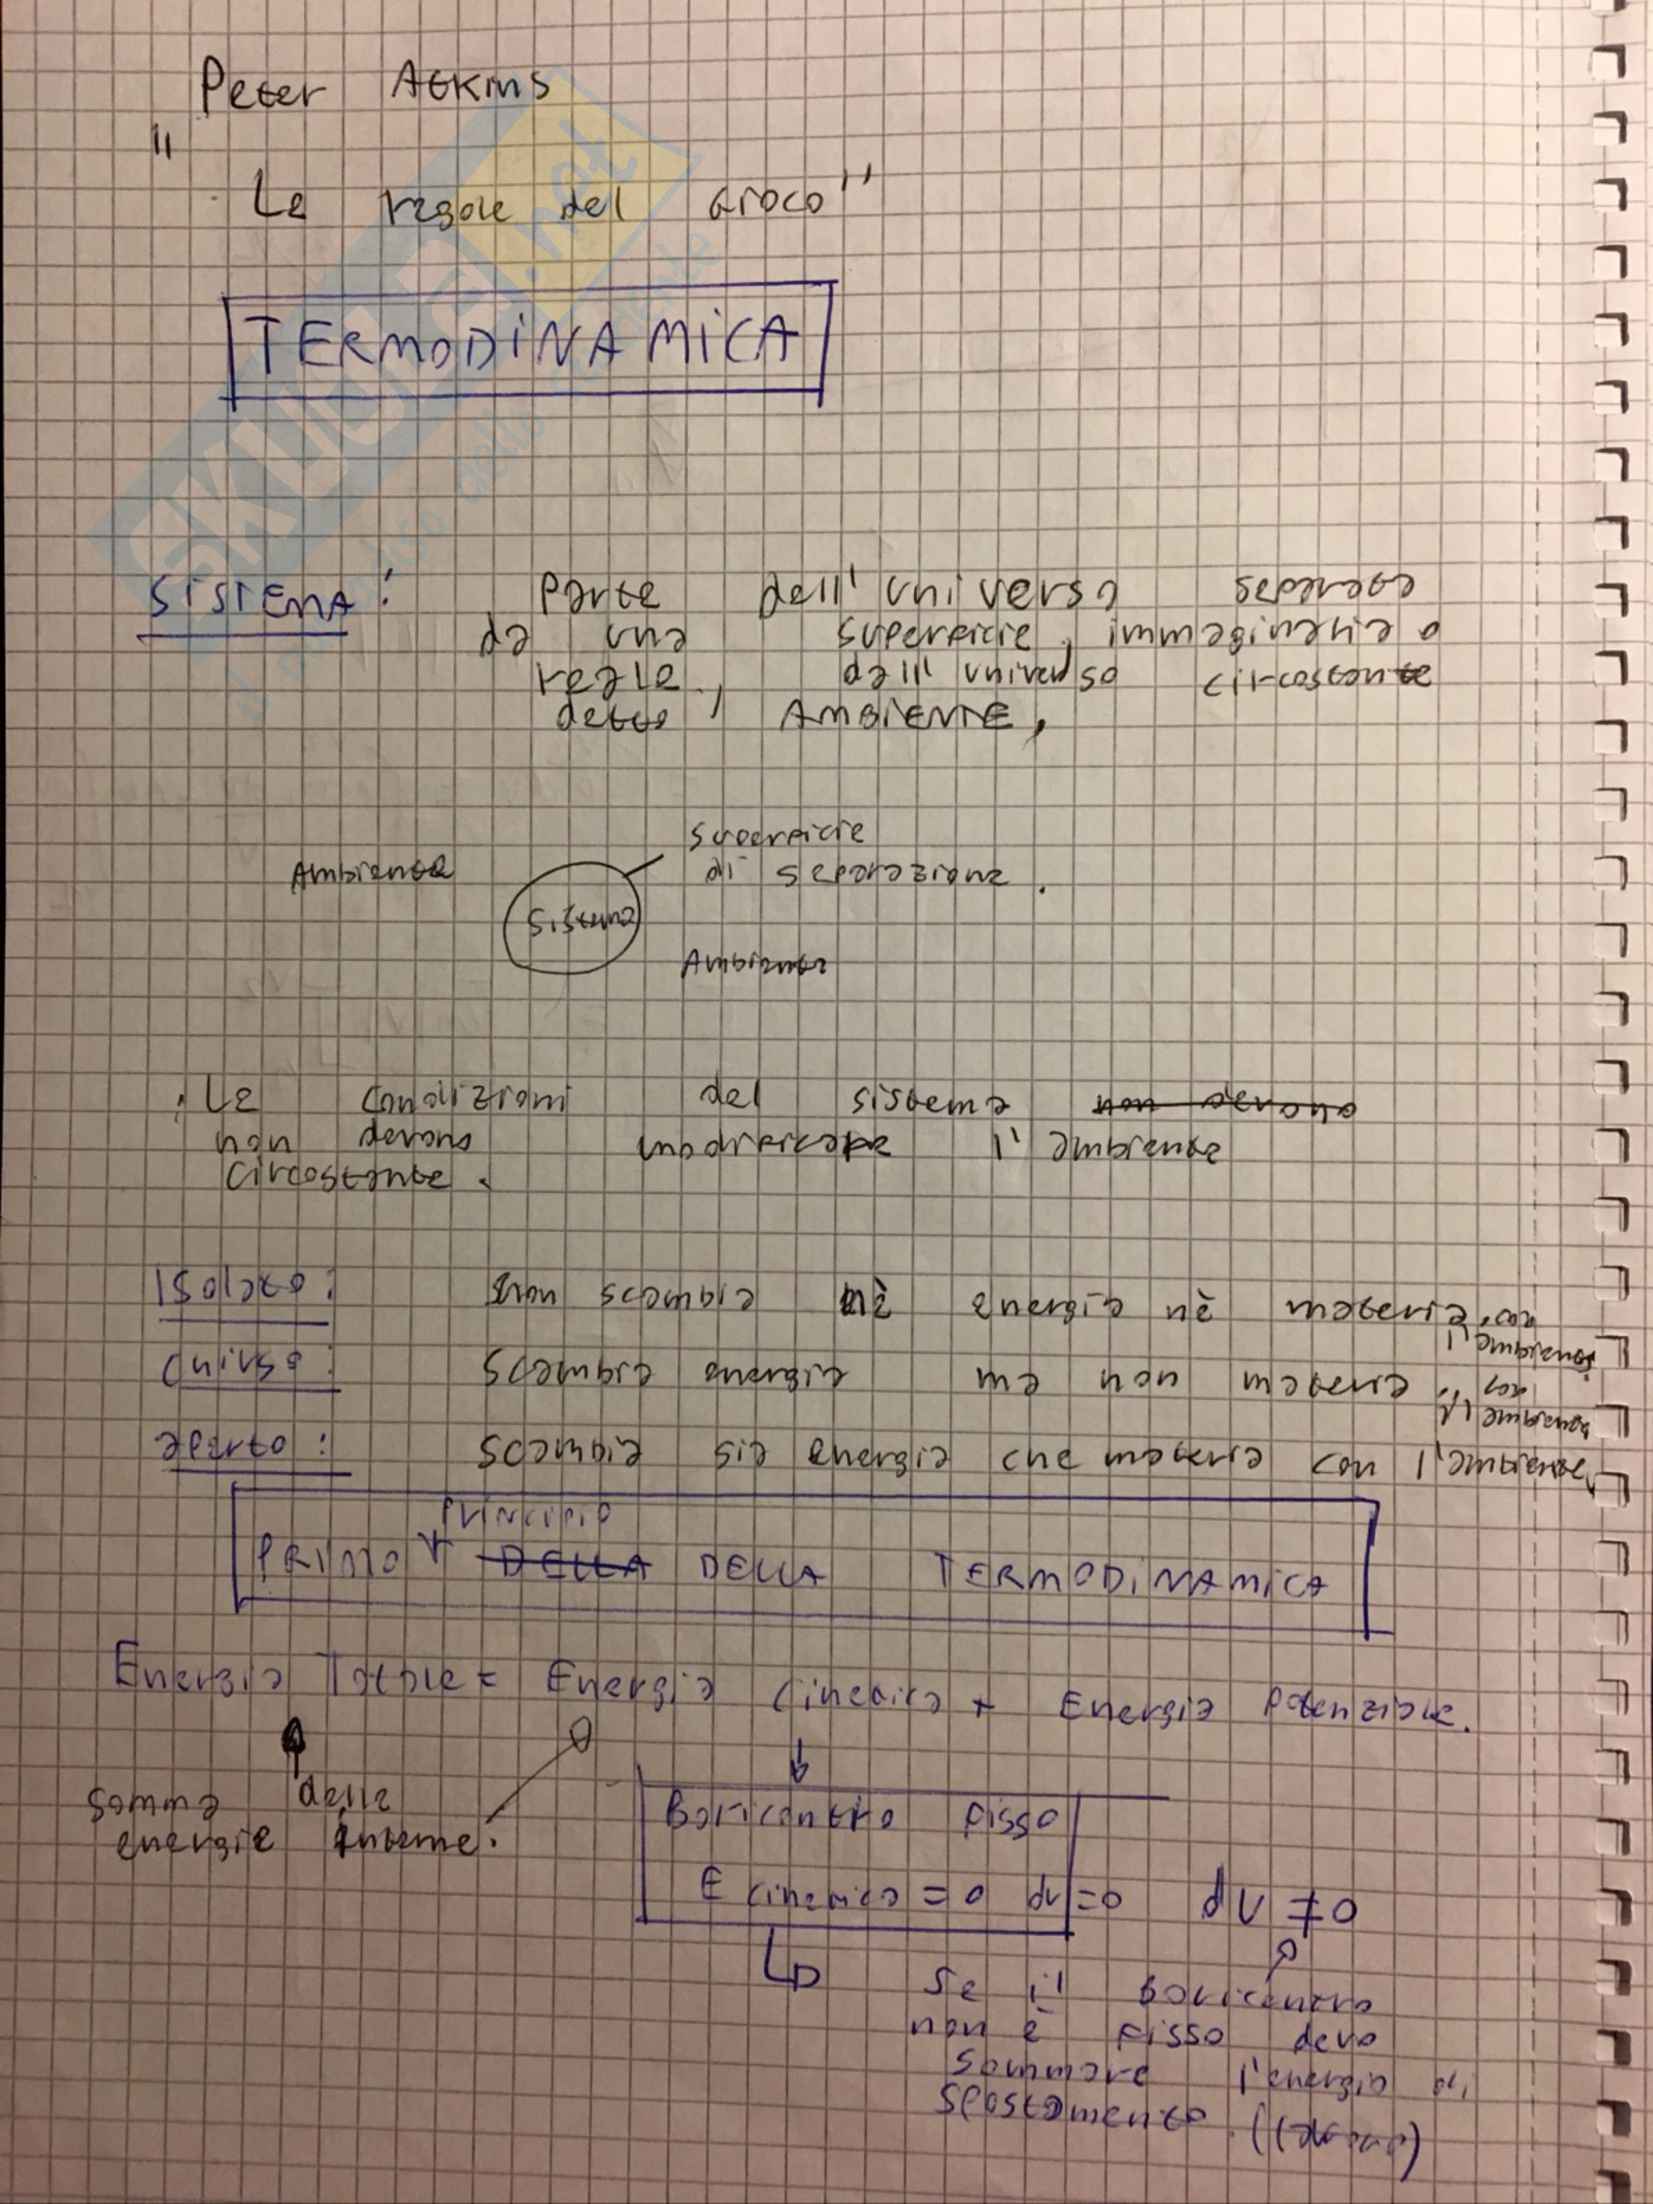 Peter Atkins
"
Le regole del Gioco"
TERMODINAMICA
SISTEMA: Parte dell'universo separata
da una superficie, immaginaria o
reale, dall'universo circostante
detto, AMBIENTE,
Superficie
Ambiente di separazione.
Sistema
Ambiente
. Le condizioni del sistema non devono
non devono modificare l'ambiente
circostante.
Isolato: non scambia nè energia nè materia, con
l'ambiente
chiuso: scambia energia ma non materia, con
l'ambiente
aperto: scambia sia energia che materia con l'ambiente,
principio
PRIMO DELLA DELLA TERMODINAMICA
Energia Totale = Energia cinetica + Energia Potenziale.
Somma delle
energie interne.
Baricentro fisso
E cinetica = 0 dV=0 dV ≠ 0
Se il Baricentro
non è fisso devo
sommare l'energia di
spostamento
SKUOLA.net